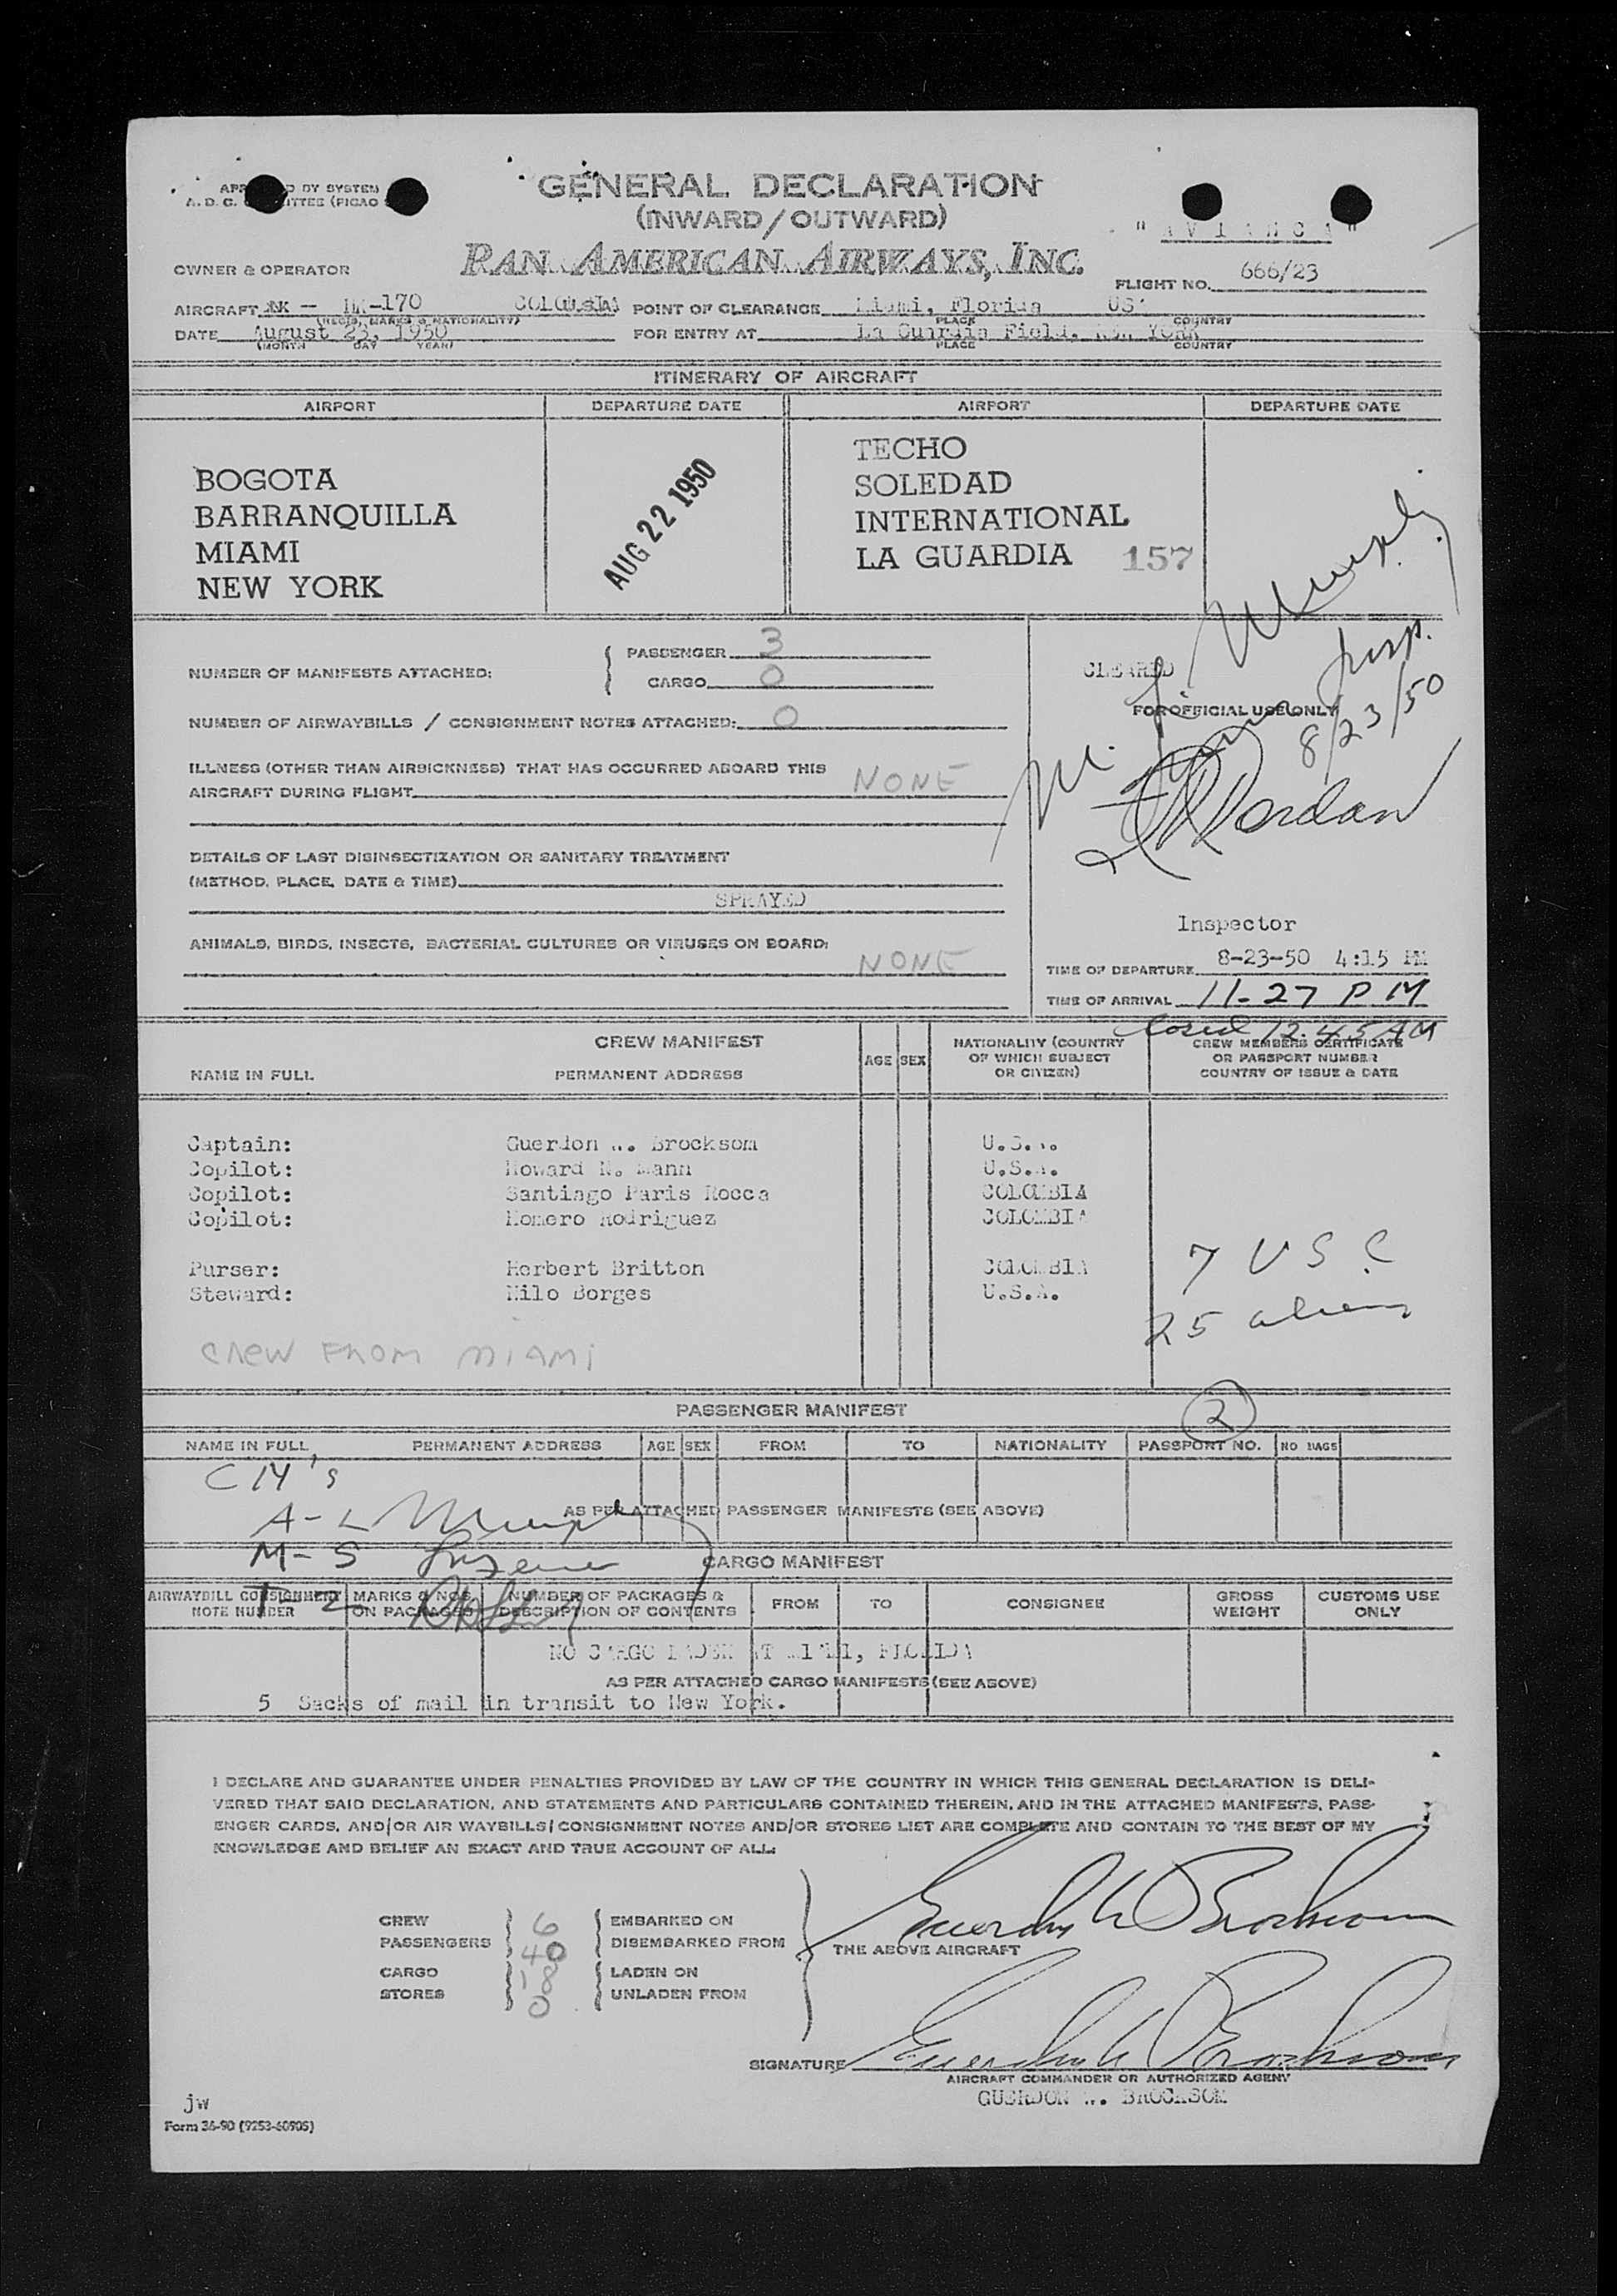 GENERAL DECLARATION
(INWARD/OUTWARD)
PAN AMERICAN AIRWAYS, INC.
"AVIANCA"
BY SYSTEM
A. D. C. (PICAO
OWNER & OPERATOR
FLIGHT NO. 666/23
AIRCRAFT HK-170 COLOMBIA POINT OF CLEARANCE Miami, Florida
(REGIS. MARKS & NATIONALITY) PLACE COUNTRY
DATE August 23, 1950 FOR ENTRY AT La Guardia Field, NEW YORK
(MONTH DAY YEAR) PLACE COUNTRY
ITINERARY OF AIRCRAFT
AIRPORT DEPARTURE DATE AIRPORT DEPARTURE DATE
BOGOTA TECHO
BARRANQUILLA SOLEDAD
MIAMI INTERNATIONAL
NEW YORK LA GUARDIA 157
AUG 22 1950
NUMBER OF MANIFESTS ATTACHED: PASSENGER 3
CARGO 0
NUMBER OF AIRWAYBILLS / CONSIGNMENT NOTES ATTACHED: 0
ILLNESS (OTHER THAN AIRSICKNESS) THAT HAS OCCURRED ABOARD THIS
AIRCRAFT DURING FLIGHT NONE
DETAILS OF LAST DISINSECTIZATION OR SANITARY TREATMENT
(METHOD, PLACE, DATE & TIME)
SPRAYED
ANIMALS, BIRDS, INSECTS, BACTERIAL CULTURES OR VIRUSES ON BOARD:
NONE
CLEARED
FOR OFFICIAL USE ONLY
Insp.
8/23/50
Inspector
TIME OF DEPARTURE 8-23-50 4:15 PM
TIME OF ARRIVAL 11-27 PM
Closed 12.45 AM
CREW MANIFEST
NAME IN FULL PERMANENT ADDRESS AGE SEX NATIONALITY (COUNTRY OF WHICH SUBJECT OR CITIZEN) CREW MEMBERS CERTIFICATE OR PASSPORT NUMBER COUNTRY OF ISSUE & DATE
Captain: Guerdon W. Brocksom U.S.A.
Copilot: Howard N. Mann U.S.A.
Copilot: Santiago Paris Rocca COLOMBIA
Copilot: Homero Rodriguez COLOMBIA
Purser: Herbert Britton COLOMBIA
Steward: Nilo Borges U.S.A.
7 USC
25 aliens
CREW FROM MIAMI
PASSENGER MANIFEST
2
NAME IN FULL PERMANENT ADDRESS AGE SEX FROM TO NATIONALITY PASSPORT NO. NO BAGS
CM's
A-L Murphy
AS PER ATTACHED PASSENGER MANIFESTS (SEE ABOVE)
M-S
T-Z
CARGO MANIFEST
AIRWAYBILL CONSIGNMENT NOTE NUMBER MARKS & NOS. ON PACKAGES NUMBER OF PACKAGES & DESCRIPTION OF CONTENTS FROM TO CONSIGNEE GROSS WEIGHT CUSTOMS USE ONLY
NO CARGO LADEN AT MIAMI, FLORIDA
AS PER ATTACHED CARGO MANIFESTS (SEE ABOVE)
5 Sacks of mail in transit to New York.
I DECLARE AND GUARANTEE UNDER PENALTIES PROVIDED BY LAW OF THE COUNTRY IN WHICH THIS GENERAL DECLARATION IS DELI-
VERED THAT SAID DECLARATION, AND STATEMENTS AND PARTICULARS CONTAINED THEREIN, AND IN THE ATTACHED MANIFESTS, PASS-
ENGER CARDS, AND/OR AIR WAYBILLS/CONSIGNMENT NOTES AND/OR STORES LIST ARE COMPLETE AND CONTAIN TO THE BEST OF MY
KNOWLEDGE AND BELIEF AN EXACT AND TRUE ACCOUNT OF ALL:
CREW 6 EMBARKED ON
PASSENGERS 40 DISEMBARKED FROM
THE ABOVE AIRCRAFT
CARGO LADEN ON
STORES 0 UNLADEN FROM
Guerdon W Brocksom
SIGNATURE Guerdon W Brocksom
AIRCRAFT COMMANDER OR AUTHORIZED AGENT
GUERDON W. BROCKSOM
jw
Form 36-90 (9253-60905)